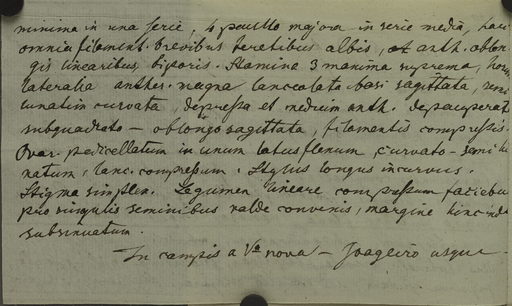 minima in una serie, 4 paullo majora in serie media, haec
omnia filament. brevibus teretibus albis, et anth. oblon-
gis linearibus, biporis. Stamina 3 maxima suprema, horum
lateralia anther. magna lanceolata basi sagittata, semi
lunatim curvata, depressa et medium anth. depauperat
subquadrato - oblongo sagittata, filamentis compressis.
Ovar. pedicellatum in unum latus flexum, curvato-semilu
natum, lanc. compressum. Stylus longus incurvus.
Stigma simplex. Legumen lineare compressum faciebus
pro singulis seminibus valde convexis, margine hinc inde
subsinuatum.
In campis a Va nova - Joazeiro usque